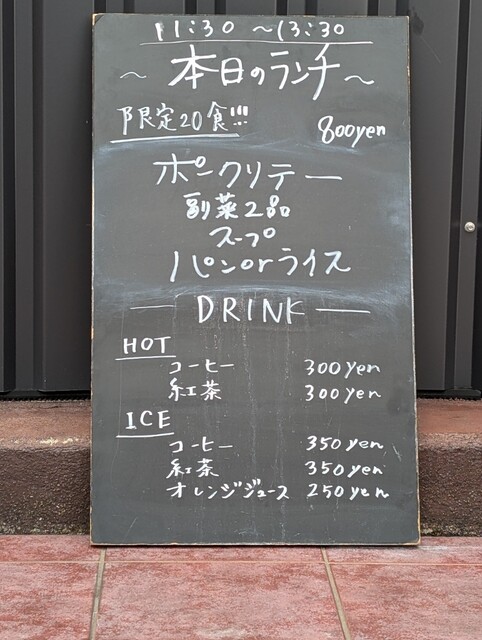 11:30 〜13:30
〜 本日のランチ 〜
限定20食!!!
800yen
ポークソテー
副菜2品
スープ
パンorライス
DRINK
HOT
コーヒー 300yen
紅茶 300yen
ICE
コーヒー 350yen
紅茶 350yen
オレンジジュース 250yen